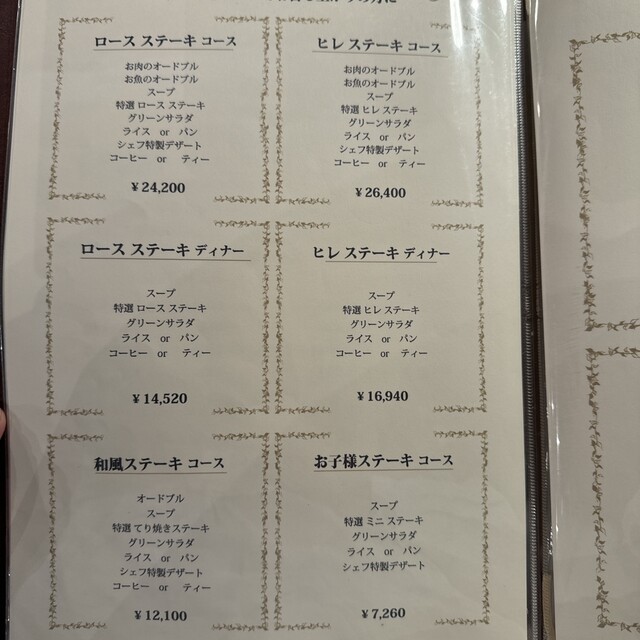 ロース ステーキ コース
お肉のオードブル
お魚のオードブル
スープ
特選 ロース ステーキ
グリーンサラダ
ライス or パン
シェフ特製デザート
コーヒー or ティー
￥24,200
ヒレ ステーキ コース
お肉のオードブル
お魚のオードブル
スープ
特選 ヒレ ステーキ
グリーンサラダ
ライス or パン
シェフ特製デザート
コーヒー or ティー
￥26,400
ロース ステーキ ディナー
スープ
特選 ロース ステーキ
グリーンサラダ
ライス or パン
コーヒー or ティー
￥14,520
ヒレ ステーキ ディナー
スープ
特選 ヒレ ステーキ
グリーンサラダ
ライス or パン
コーヒー or ティー
￥16,940
和風ステーキ コース
オードブル
スープ
特選 てり焼きステーキ
グリーンサラダ
ライス or パン
シェフ特製デザート
コーヒー or ティー
￥12,100
お子様ステーキ コース
スープ
特選 ミニ ステーキ
グリーンサラダ
ライス or パン
シェフ特製デザート
￥7,260